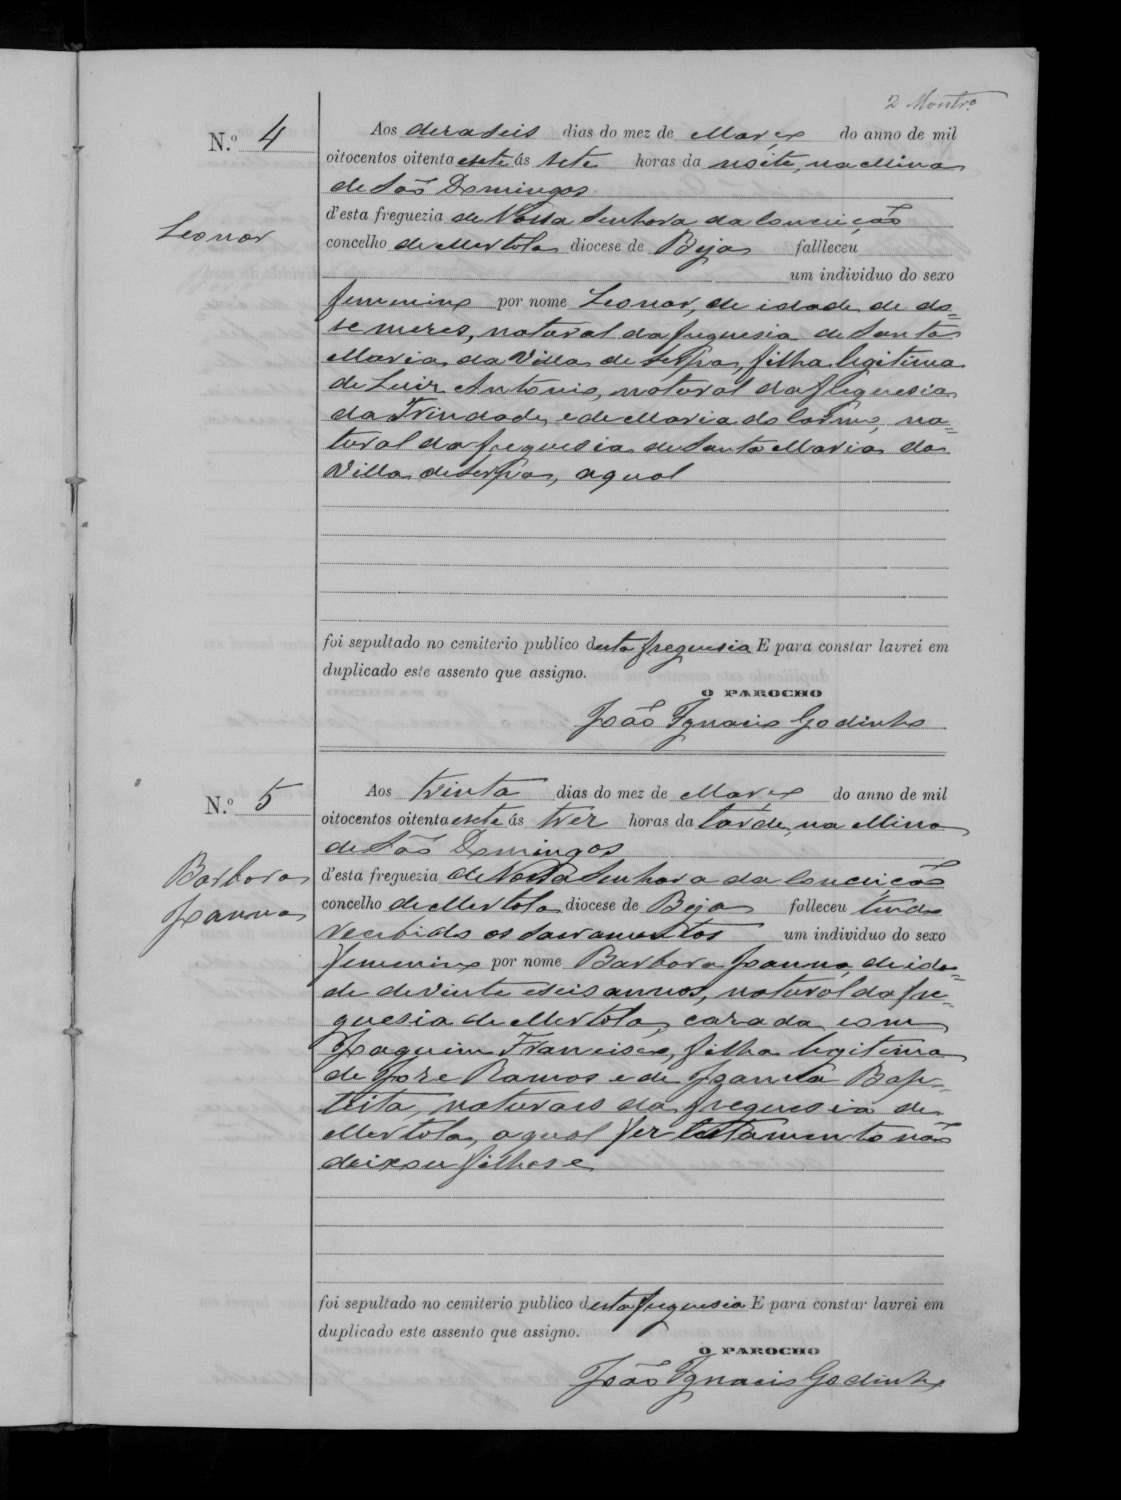 2 Montrº
N.º 4
Aos deraseis dias do mez de Março do anno de mil
oitocentos oitenta esete ás sete horas da noite, na Mina
de São Domingos
d'esta freguezia de Nossa Senhora da Conceição
Leonor
concelho de Mertola diocese de Beja fallleceu
um individuo do sexo
femenino por nome Leonor, de idade de do=
se meres, natural da freguesia de Santa
Maria da Villa de Serpa, filha legitima
de Luir Antonio, natural da freguesia
da Trindade, e de Maria do Carmo, na=
tural da freguesia de Santa Maria da
Villa de Serpa, aqual
foi sepultado no cemiterio publico desta freguesia E para constar lavrei em
duplicado este assento que assigno.
O PAROCHO
João Ignacio Godinho
N.º 5
Aos trinta dias do mez de Março do anno de mil
oitocentos oitenta esete ás trer horas da tarde, na Mina
de São Domingos
Barbara
Joanna
d'esta freguezia de Nossa Senhora da Conceição
concelho de Mertola diocese de Beja falleceu tendo
recebido os sacramentos um individuo do sexo
femenino por nome Barbara Joanna, de ida=
de de vinte eseis annos, natural da fre=
guesia de Mertola, carada com
Joaquim Francisco, filha legitima
de Jore Ramos e de Joanna Bap=
tista, naturaes da freguesia de
Mertola, aqual fer testamento não
deixou filhos e
foi sepultado no cemiterio publico desta freguesia E para constar lavrei em
duplicado este assento que assigno.
O PAROCHO
João Ignacio Godinho